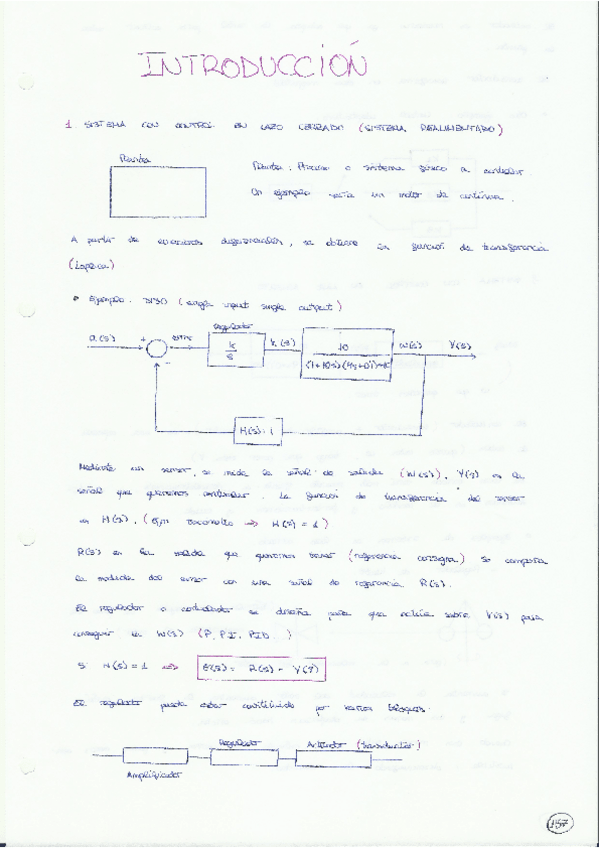 INTRODUCCIÓN
1. SISTEMA CON CONTROL EN LAZO CERRADO (SISTEMA REALIMENTADO)
Planta
Planta: Proceso o sistema físico a controlar.
Un ejemplo sería un motor de continua.
A partir de ecuaciones diferenciales, se obtiene la función de transferencia
(Laplace)
Ejemplo: SISO (single input single output)
Regulador
R(s)
+
error
k
s
V(s)
10
W(s)
Y(s)
-
H(s)=1
Mediante un sensor, se mide la señal de salida (W(s)). Y(s) es la
señal que queremos controlar. La función de transferencia del sensor
es H(s). (H(s) = 1)
R(s) es la salida que queremos tener (referencia consigna) Se compara
la medida del sensor con una señal de referencia R(s).
El regulador o controlador se diseña para que actúe sobre V(s) para
conseguir la W(s) (P, PI, PID...)
Si H(s) = 1 ⇒ E(s) = R(s) - Y(s)
El regulador puede estar constituido por varios bloques.
Regulador
Actuador (transductor)
Amplificador
157